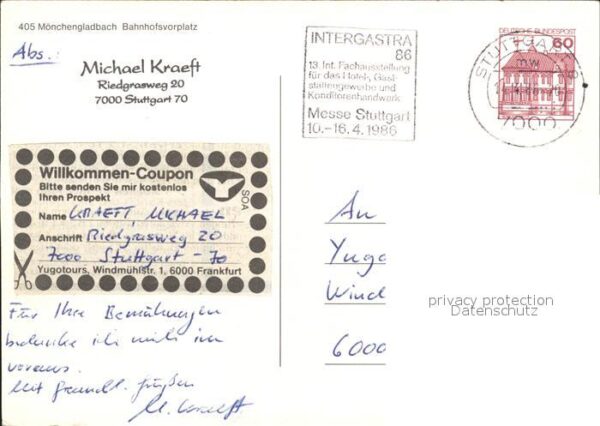 405 Mönchengladbach Bahnhofsvorplatz
Abs.:
Michael Kraeft
Riedgrasweg 20
7000 Stuttgart 70
INTERGASTRA
86
13. Int. Fachausstellung
für das Hotel-, Gast-
stättengewerbe und
Konditorenhandwerk
Messe Stuttgart
10.-16.4.1986
DEUTSCHE BUNDESPOST
60
STUTTGART
mw
7000
Willkommen-Coupon
Bitte senden Sie mir kostenlos
Ihren Prospekt
SOA
Name KRAEFT, MICHAEL
Anschrift Riedgrasweg 20
7000 Stuttgart - 70
Yugotours, Windmühlstr. 1, 6000 Frankfurt
Für Ihre Bemühungen
bedanke ich mich im
voraus.
Mit freundl. Grüßen
M. Kraeft
An
Yugo
Wind
6000
privacy protection
Datenschutz